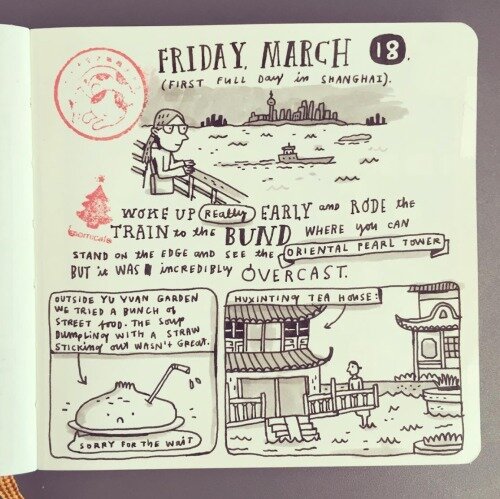 FRIDAY, MARCH 18.
(FIRST FULL DAY in SHANGHAI).
WOKE UP REALLY EARLY and RODE the
TRAIN to the BUND WHERE YOU CAN
STAND ON THE EDGE AND SEE the ORIENTAL PEARL TOWER
BUT it WAS INCREDIBLY OVERCAST.
OUTSIDE YU YUAN GARDEN
WE TRIED A BUNCH of
STREET FOOD. THE SOUP
DUMPLING WITH A STRAW
STICKING OUT WASN'T GREAT.
SORRY FOR THE WAIT
HUXINTING TEA HOUSE: